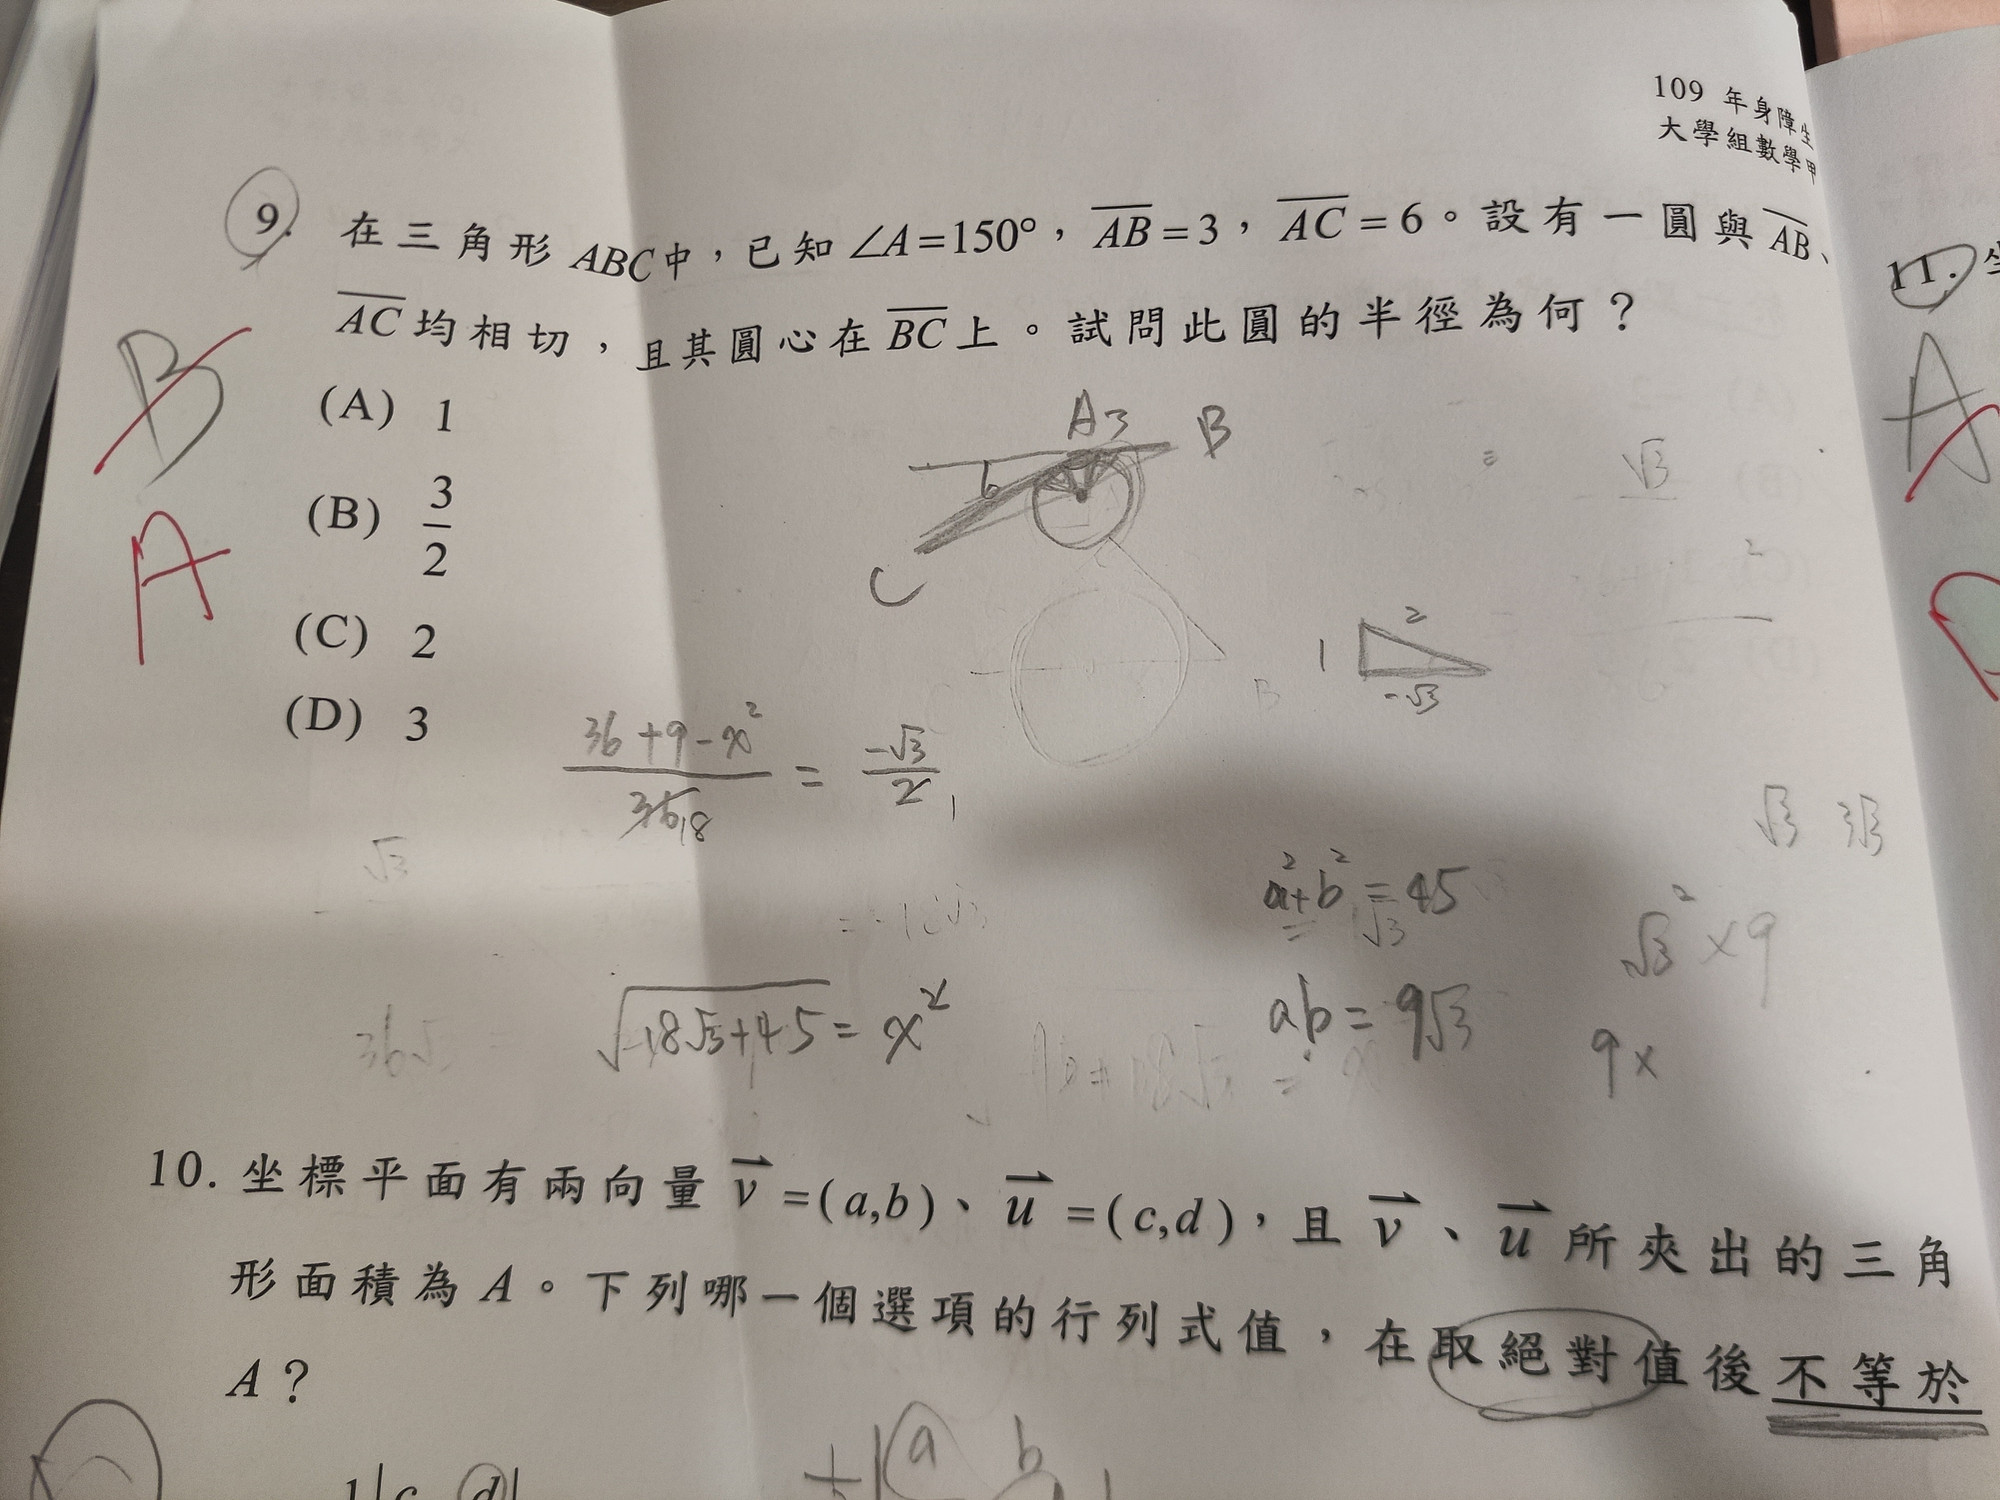 109 年身障生
大學組數學甲
9. 在三角形 ABC中，已知 ∠A=150°，AB=3，AC=6。設有一圓與AB、
AC均相切，且其圓心在BC上。試問此圓的半徑為何？
B
A
(A) 1
(B) 3/2
(C) 2
(D) 3
A 3 B
6
C
2
1
-√3
√3
2
36+9-x²
= -√3/2
36 18
1
√3
√3 3√3
a²+b²=45
√3
√3² ×9
√-18√3+45 = x²
ab=9√3
9×
36√
10. 坐標平面有兩向量 v=(a,b)、u=(c,d)，且 v、u 所夾出的三角
形面積為 A。下列哪一個選項的行列式值，在取絕對值後不等於
A？
a b
1 c d
11. 坐
A